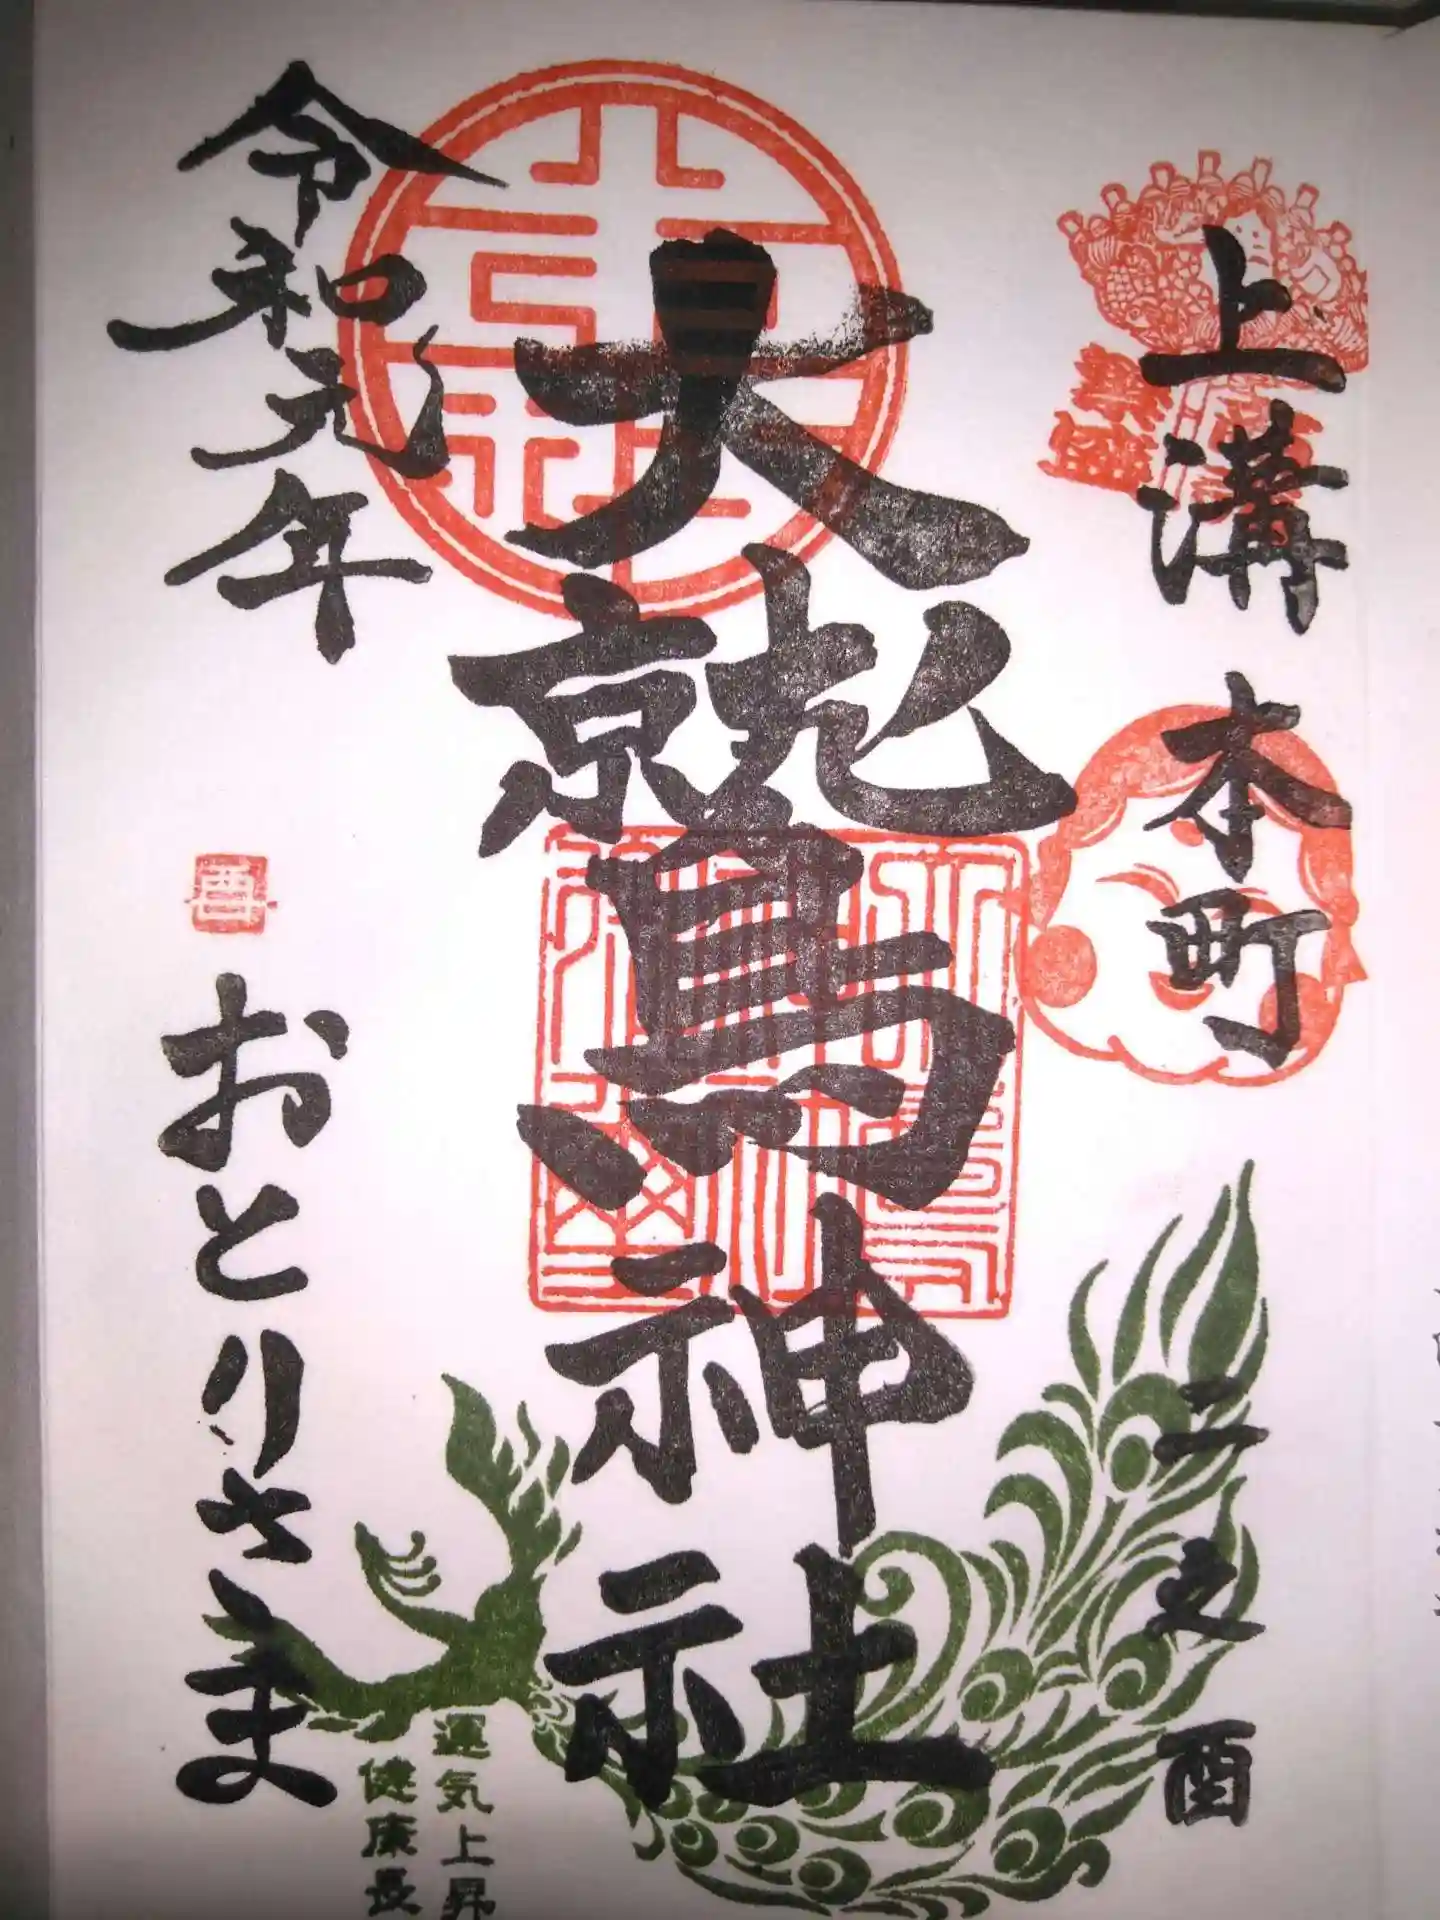 上溝 本町 二之酉
大鷲神社
令和元年
酉
おとりさま
運気上昇
健康長